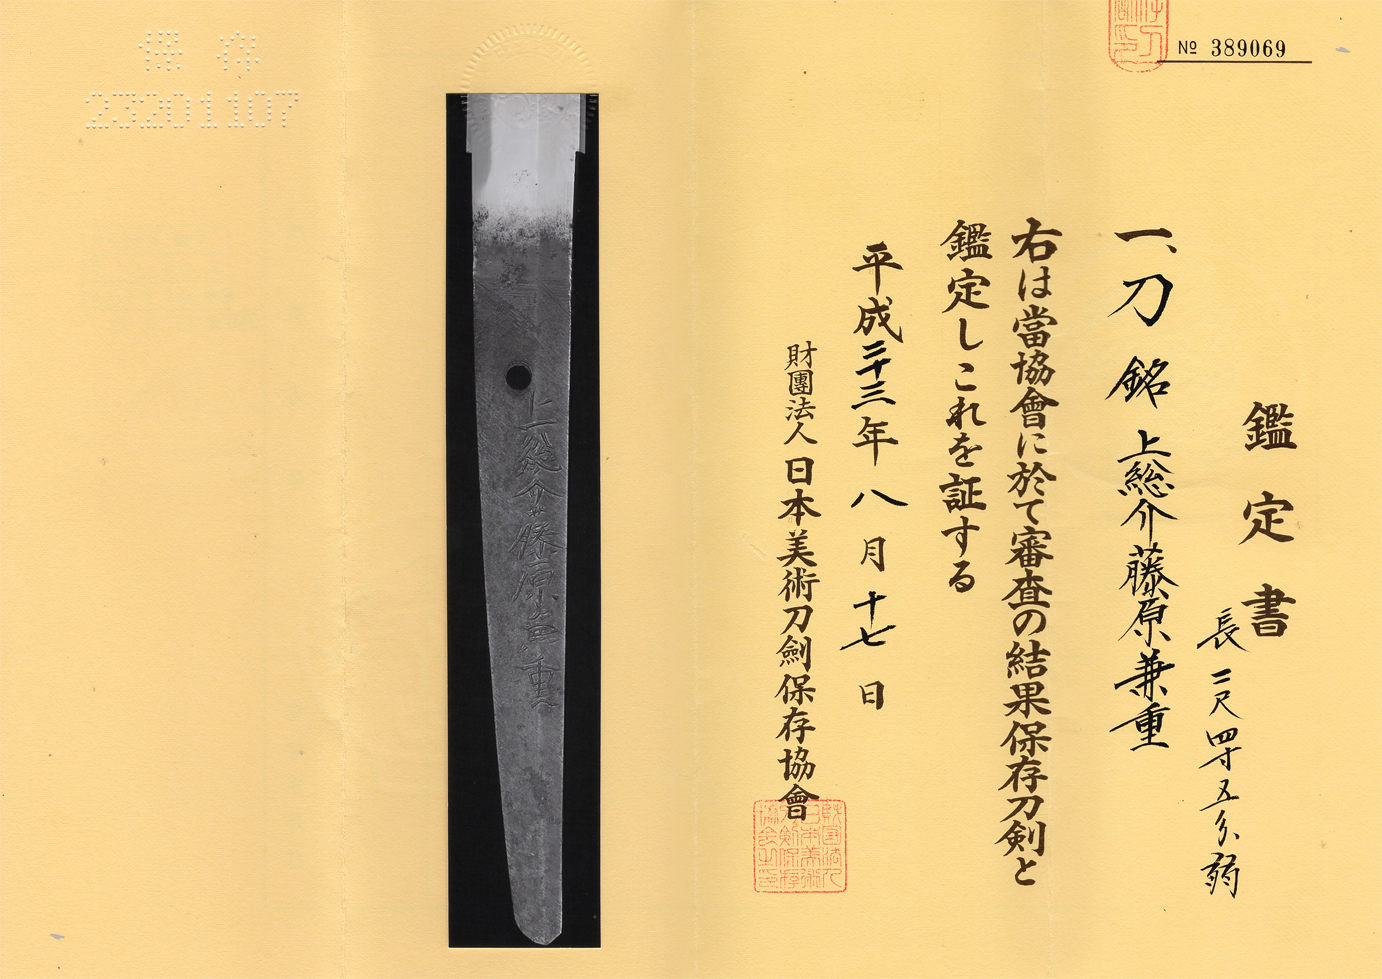 № 389069
鑑定書
長二尺四寸五分弱
一、刀 銘 上総介藤原兼重
右は當協會に於て審査の結果保存刀剣と
鑑定しこれを証する
平成二十三年八月十七日
財團法人日本美術刀劍保存協會
財団法人日本美術刀剣保存協会之印
上総介藤原兼重
保存
23201107